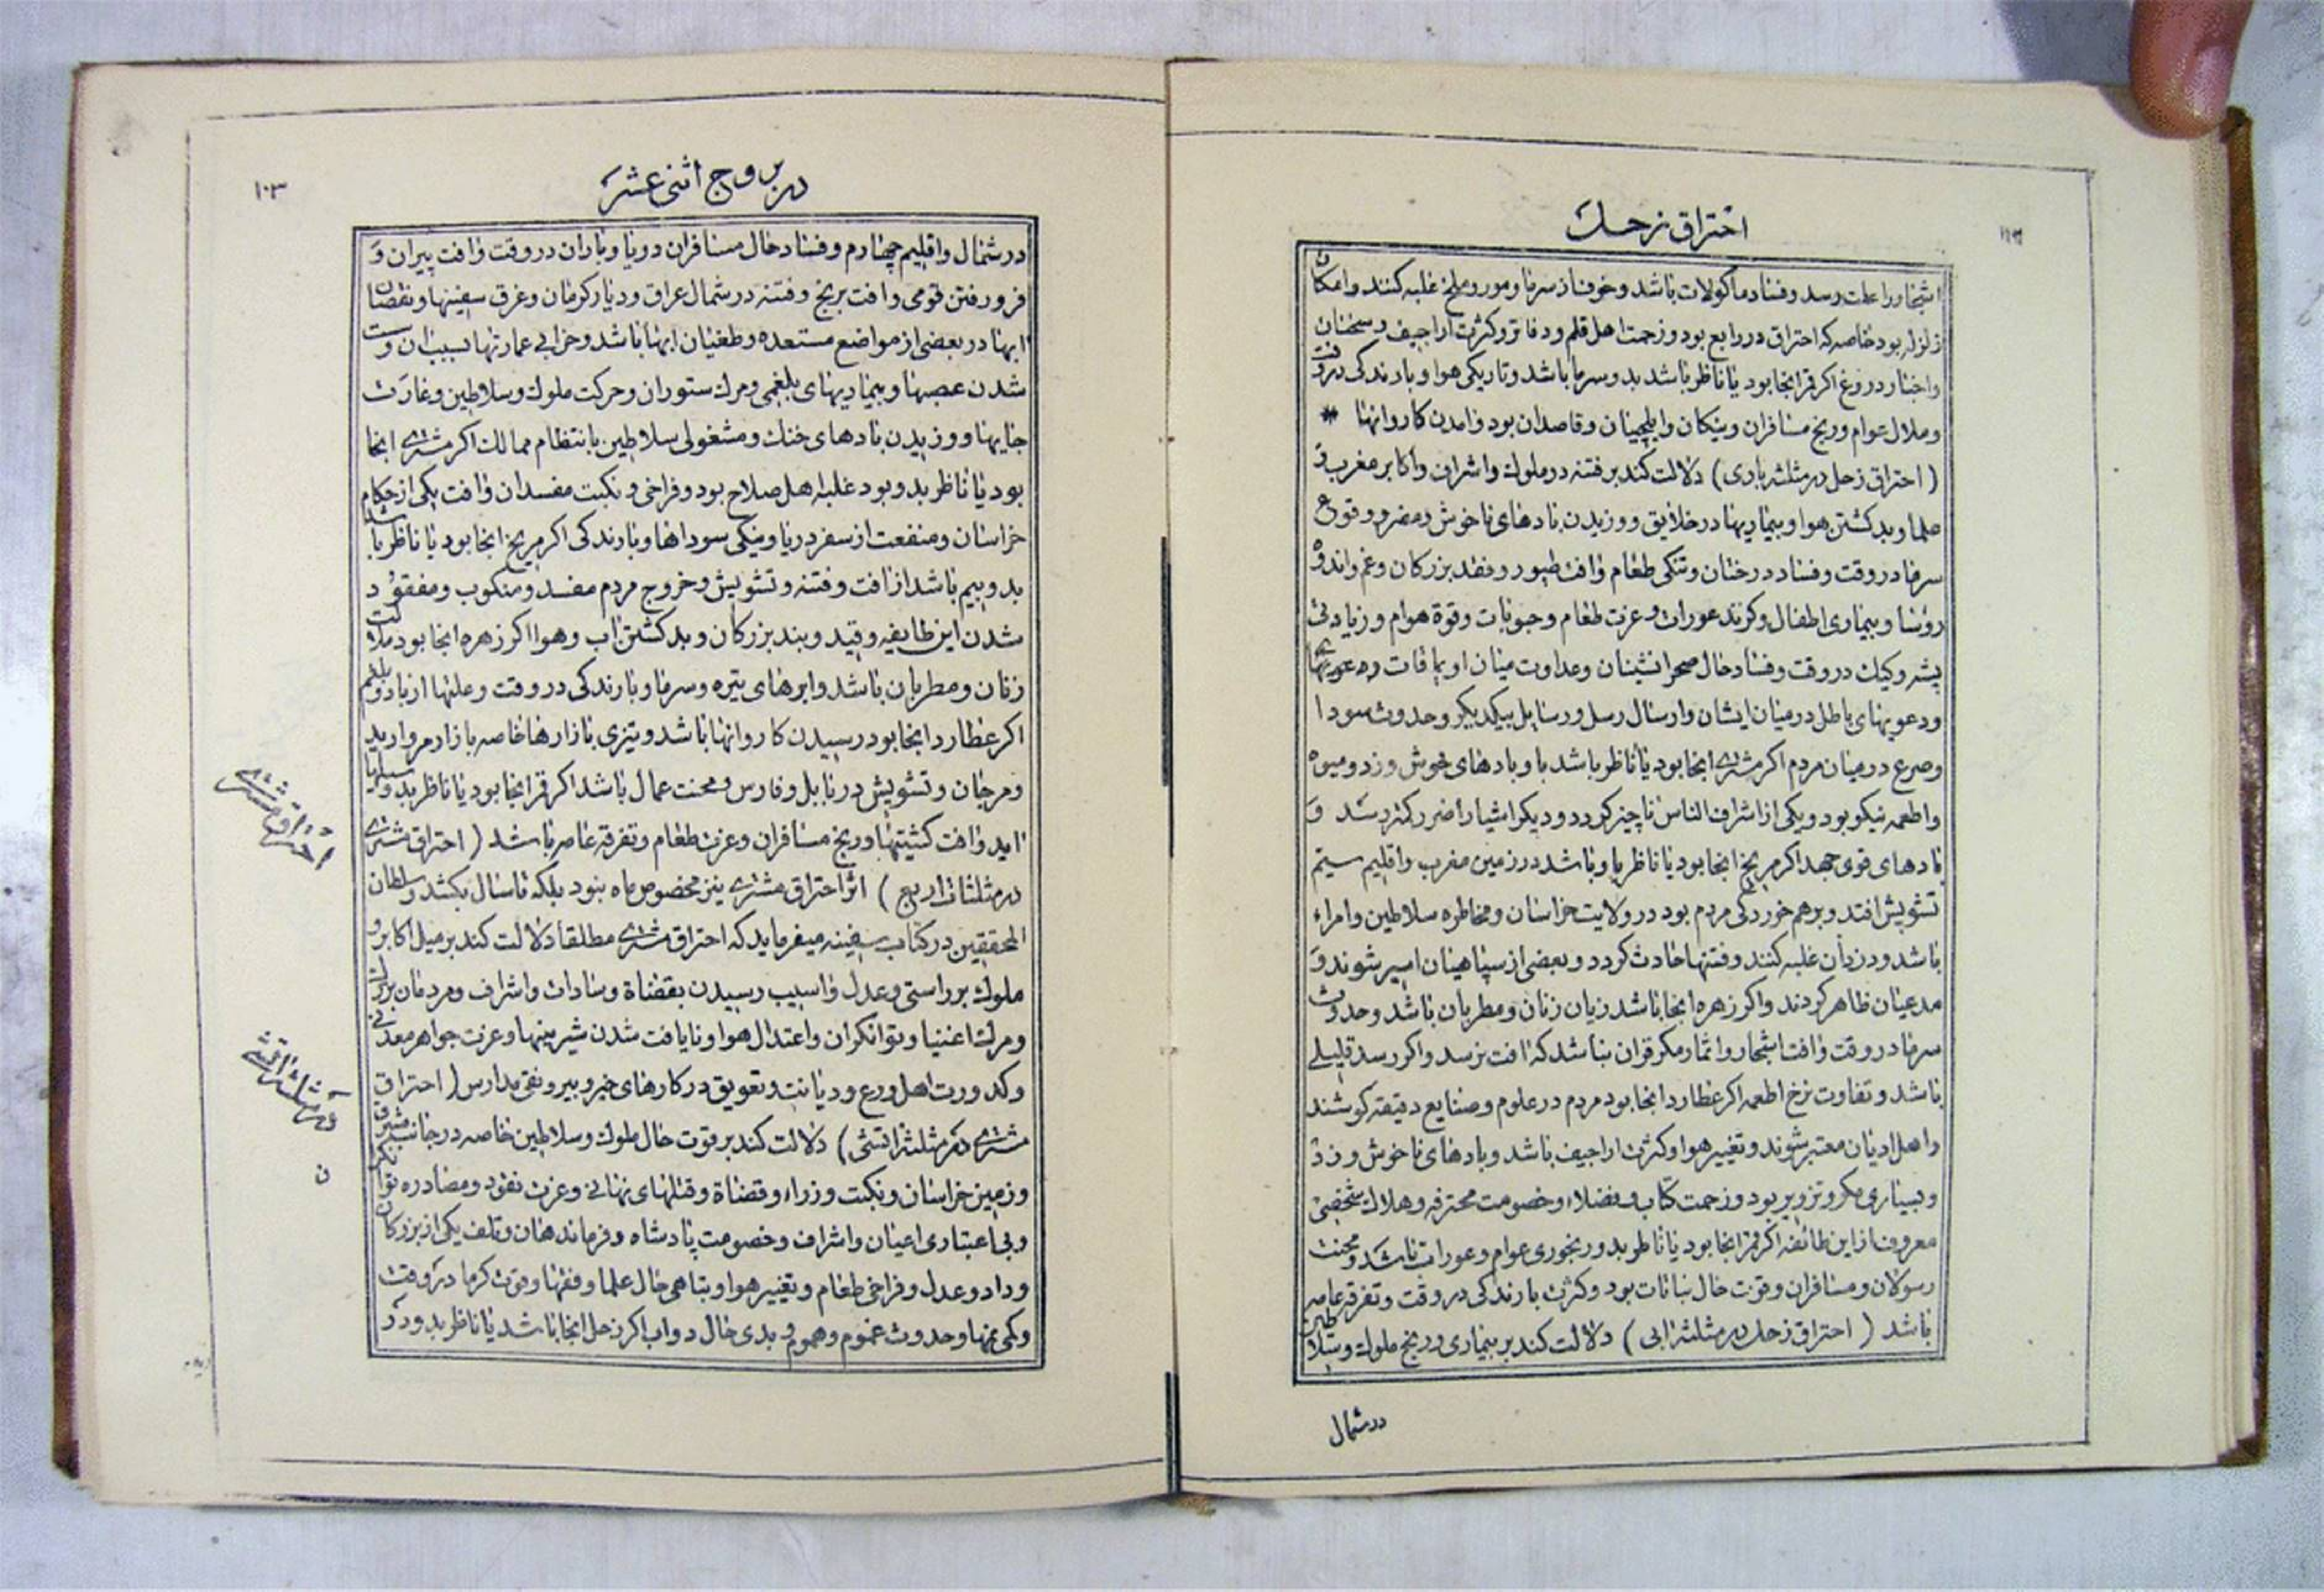 احتراق زحل
اشجار را علت رسد و فساد ماکولات باشد و خوف از سرما و مور و ملخ غلبه کنند و امکان
زلزله بود خاصه که احتراق در رابع بود و زحمت اهل قلم و دفاتر و کثرت اراجیف و سخنان
و اخبار دروغ اکر قمر انجا بود یا ناظر باشد بد و سرما باشد و تاریکی هوا و بارندکی در وقت
و ملال عوام و رنج مسافران و پیکان و ایلچیان و قاصدان بود و امدن کاروانها *
(احتراق زحل در مثلثه بادی) دلالت کند بر فتنه در ملوک و اشراف و اکابر مغرب و
علما و بد کشتن هوا و بیماریها در خلایق و وزیدن بادهای ناخوش و مضر و وقوع
سرما در وقت و فساد درختان و تنکی طعام و افت طیور و فقد بزرکان و غم و اندوه
رؤسا و بیماری اطفال و کزند عورات و عزت طعام و حبوبات و قوة هوام و زیادتی
پشه و کیک در وقت و فساد حال صحرانشینان و عداوت میان اویماقات و
و دعویهای باطل در میان ایشان و ارسال رسل و رسایل بیکدیکر و حدوث سودا
و صرع در میان مردم اکر مشتری انجا بود یا ناظر باشد باو بادهای خوش وزد و میوه
و اطعمه نیکو بود و یکی از اشراف الناس ناچیز کردد و دیکر اشیا را ضرر کمتر رسد و
بادهای قوی جهد اکر مریخ انجا بود یا ناظر باو باشد در زمین مغرب و اقلیم سیم
تشویش افتد و برهم خوردکی مردم بود در ولایت خراسان و مخاطره سلاطین و امراء
باشد و دزدان غلبه کنند و فتنها حادث کردد و بعضی از سپاهیان اسیر شوند و
مدعیان ظاهر کردند و اکر زهره انجا باشد زیان زنان و مطربان باشد و حدوث
سرما در وقت و افت اشجار و اثمار مکر قران بناشد که افت نرسد و اکر رسد قلیلی
باشد و تفاوت نرخ اطعمه اکر عطارد انجا بود مردم در علوم و صنایع دقیقه کوشند
و اهل ادیان معتبر شوند و تغییر هوا و کثرت اراجیف باشد و بادهای ناخوش وزد
و بسیاری مکر و تزویر بود و زحمت کتاب و فضلاء و خصومت محترفه و هلاک شخصی
معروف از این طائفه اکر قمر انجا بود یا ناظر بد و رنجوری عوام و عورات باشد و محنت
رسولان و مسافران و قوت حال نباتات بود و کثرت بارندکی در وقت و تفرقه عناصر
باشد (احتراق زحل در مثلثه ابی) دلالت کند بر بیماری و رنج ملوک و سلاطین
در شمال
در بروج اثنی عشر
۱۰۳
در شمال و اقلیم چهارم و فساد حال مسافران دریا و باران در وقت و افت پیران و
فرو رفتن قومی و افت برنج و فتنه در شمال عراق و دیار کرمان و غرق سفینها و نقصان
ابها در بعضی از مواضع مستعده و طغیان ابها باشد و خرابی عمارتها بسبب ان و سست
شدن عصبها و بیماریهای بلغمی و مرک ستوران و حرکت ملوک و سلاطین و غارت
جایها و وزیدن بادهای خنک و مشغولی سلاطین بانتظام ممالک اکر مشتری انجا
بود یا ناظر بدو بود غلبه اهل صلاح بود و فراخی و نکبت مفسدان و افت یکی از حکام
خراسان و منفعت از سفر دریا و نیکی سوداها و بارندکی اکر مریخ انجا بود یا ناظر باشد
بدو بیم باشد از افت و فتنه و تشویش و خروج مردم مفسد و منکوب و مفقود
شدن این طایفه و قید و بند بزرکان و بد کشتن اب و هوا اکر زهره انجا بود
زنان و مطربان باشد و ابرهای تیره و سرما و بارندکی در وقت و علتها از باد و بلغم
اکر عطارد انجا بود رسیدن کاروانها باشد و تیزی بازارها خاصه بازار مروارید
و مرجان و تشویش در بابل و فارس و محنت عمال باشد اکر قمر انجا بود یا ناظر بدو
اید و افت کشتیها و رنج مسافران و عزت طعام و تفرقه عناصر باشد (احتراق مشتری
در مثلثات اربع) اثر احتراق مشتری نیز مخصوص ماه نبود بلکه تا سال بکشد و سلطان
المحققین در کتاب سفینه میفرماید که احتراق مشتری مطلقا دلالت کند بر میل اکابر و
ملوک بر راستی و عدل و اسیب رسیدن بقضاة و سادات و اشراف و مردمان بزرک
و مرک اغنیا و توانکران و اعتدال هوا و نایافت شدن شیرینها و عزت جواهر معدنی
و کدورت اهل ورع و دیانت و تعویق در کارهای خیر و بیرونقی مدارس (احتراق
مشتری در مثلثه اتشی) دلالت کند بر قوت حال ملوک و سلاطین خاصه در جانب مشرق
و زمین خراسان و نکبت وزراء و قضاة و قتلهای نهانی و عزت نقود و مصادره توانکران
و بی اعتباری اعیان و اشراف و خصومت پادشاه و فرماندهان و تلف یکی از بزرکان
و داد و عدل و فراخی طعام و تغییر هوا و تباهی حال علما و فقها و قوت کرما در وقت
و کمی نمها و حدوث غموم و هموم و بدی حال دواب اکر زحل انجا باشد یا ناظر بدو و در
احتراق مشتری
در مثلثه اتشی